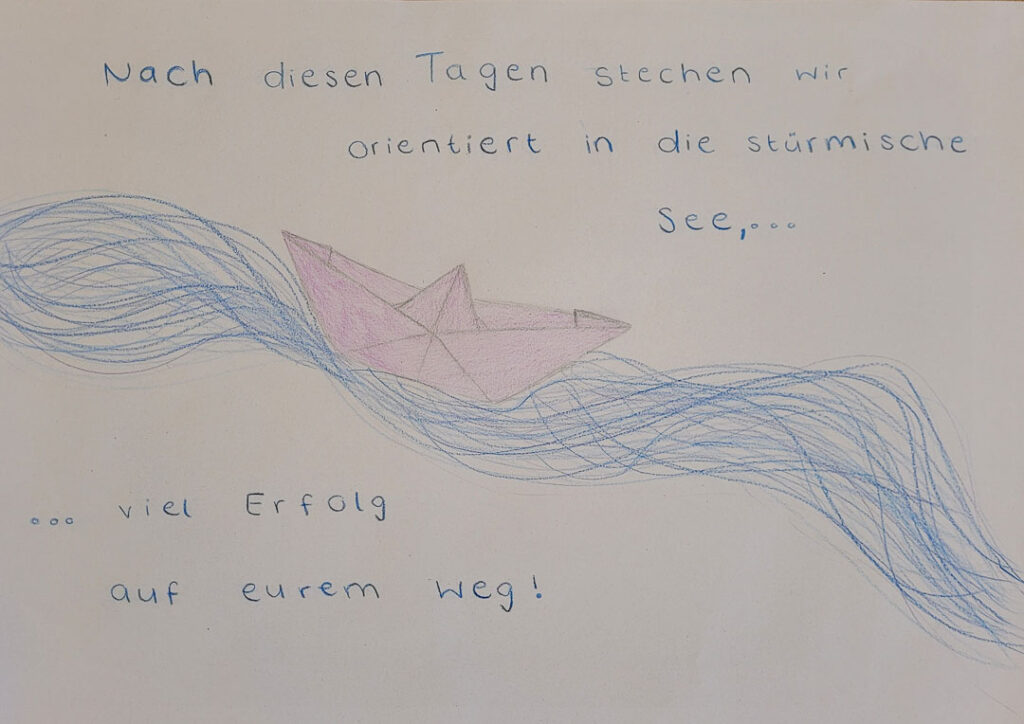 Nach diesen Tagen stechen wir
orientiert in die stürmische
See,...
... viel Erfolg
auf eurem Weg!